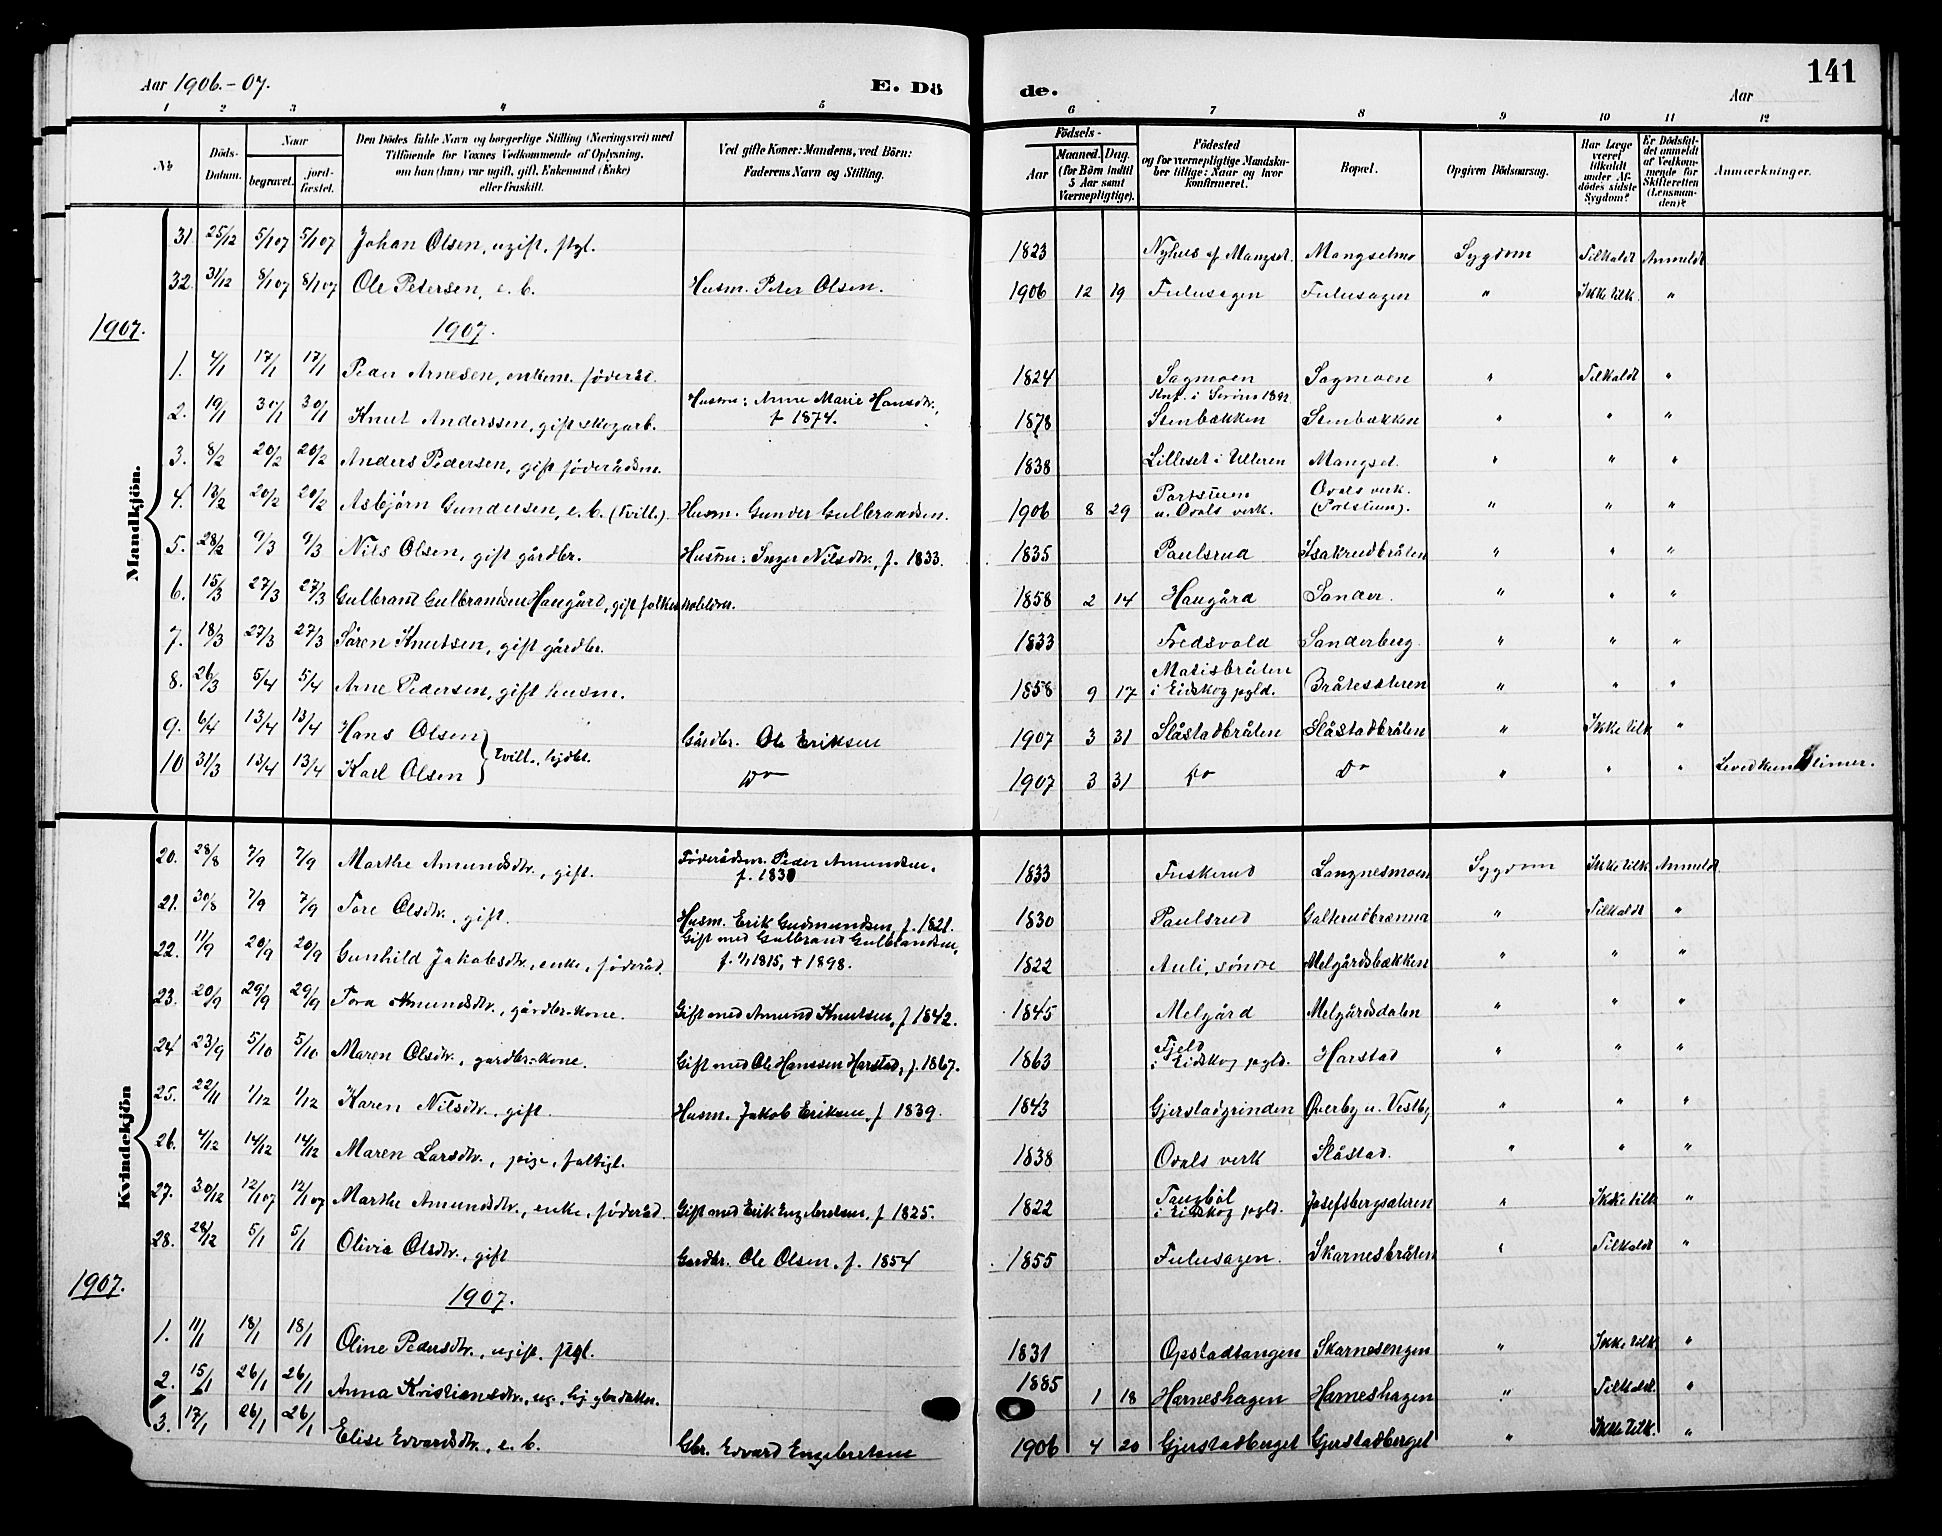 141
Aar 1906.-07. E. Dö de. Aar
1 2 3 4 5 6 7 8 9 10 11 12
№ Döds-Datum. Naar begravet. jordfæstet. Den Dödes fulde Navn og borgerlige Stilling (Næringsvei) med Tilföiende for Voxnes Vedkommende af Oplysning, om hun (han) var ugift, gift, Enkemand (Enke) eller fraskilt. Ved gifte Koner: Mandens, ved Börn: Faderens Navn og Stilling. Födsels- Aar Maaned. Dag. (for Börn indtil 5 Aar samt Værnepligtige). Födested og for værnepligtige Mandskaber tillige: Naar og hvor konfirmeret. Bopæl. Opgiven Dödsaarsag. Har Læge været tilkaldt under Afdödes sidste Sygdom? Er Dödsfaldet anmeldt af Vedkommende for Skifteretten (Lensmanden)? Anmærkninger.
Mandkjön.
31 25/12 5/1 07 5/1 07 Johan Olsen, ugift, ftgl. 1823 Nyhus af Mangset. Mangsetmo Sygdom Tilkaldt Anmeldt
32. 31/12 8/1 07 8/1 07 Ole Petersen, e. b. Husm. Peter Olsen. 1906 12 19 Fulusagen Fulusagen " Ikke tilk. "
1907. 1907.
1. 4/1 17/1 17/1 Peder Arnesen, enkem. föderåd. 1824 Sagmoen Sagmoen " Tilkaldt "
2. 19/1 30/1 30/1 Knut Anderssen, gift skogarb. Hustru: Anne Marie Hansdtr., f 1874. 1878 Stenbækken Stenbækken " " "
3. 8/2 20/2 20/2 Anders Pedersen, gift föderådsm. 1838 Lilleset i Ulleren Mangset. " " "
4. 13/2 20/2 20/2 Asbjørn Gundersen, e. b. (tvill.). Husm. Gunder Gulbrandsen. 1906 8 29 Portstuen u. Odals verk. Odals verk. (Portstuen). " " "
5. 28/2 9/3 9/3 Nils Olsen, gift gårdbr. Hustru: Inger Nilsdtr., f. 1833. 1835 Paulsrud Isakrudbråten " " "
6. 15/3 27/3 27/3 Gulbrand Gulbrandsen Haugård, gift folkeskolelærer. 1858 2 14 Haugård Sander. " " "
7. 18/3 27/3 27/3 Sören Knutsen, gift gårdbr. 1833 Fredsvold Sanderberg. " " "
8. 26/3 5/4 5/4 Arne Pedersen, gift husm. 1858 9 17 Matisbråten i Eidskog pgld. Bråtesæteren " " "
9. 6/4 13/4 13/4 Hans Olsen } tvill., hjdbt. Gårdbr. Ole Eriksen 1907 3 31 Slåstadbråten Slåstadbråten " Ikke tilk "
10 31/3 13/4 13/4 Karl Olsen Do 1907 3 31 Do Do " " " Leved kun timer.
Kvindekjön
20. 28/8 7/9 7/9 Marthe Amundsdtr., gift. Föderådsm. Peder Amundsen, f. 1830 1833 Fuskerud Langnesmoen Sygdom Ikke tilk Anmeldt
21. 30/8 7/9 7/9 Tore Olsdtr., gift. Husm. Erik Gudmundsen, f. 1821. 1830 Paulsrud Galterudbrænna " Tilkaldt "
22. 11/9 20/9 20/9 Gunhild Jakobsdtr., enke, föderåd. Gift med Gulbrand Gulbrandsen, f. 1/1 1815, + 1898. 1822 Auli, söndre Melgårdsbækken " " "
23. 20/9 29/9 29/9 Tora Amundsdtr., gårdbr-kone. Gift med Amund Knutsen, f 1842. 1845 Melgård Melgårdsdalen " " "
24 23/9 5/10 5/10 Maren Olsdtr., gardbr.-kone. Gift med Ole Hanssen Harstad, f. 1867. 1863 Fjeld i Eidskog pgld. Harstad " " "
25. 22/11 1/12 1/12 Karen Nilsdtr., gift. Husm. Jakob Eriksen, f 1839. 1843 Gjerstadgrinden Överby u. Vestby " " "
26. 4/12 14/12 14/12 Maren Larsdtr., pige, fattigl. 1838 Odals verk Slåstad. " " "
27. 30/12 12/1 07 12/1 07 Marthe Amundsdtr., enke, föderåd. Gift med Erik Engebretsen, f 1825. 1822 Taugböl i Eidskog pgld. Josefsbergsæteren " Ikke tilk "
28. 28/12 5/1 5/1 Olivia Olsdtr., gift Gardbr. Ole Olsen, f. 1854 1855 Fulusagen. Skarnesbråten " Tilkaldt "
1907. 1907.
1. 11/1 18/1 18/1 Oline Pedersdtr., ugift, ftgl. 1831 Opstadtangen Skarnesengen " Ikke tilk "
2. 15/1 26/1 26/1 Anna Kristiansdtr., ug., 1885 1 18 Harneshagen Harneshagen " Tilkaldt. "
3. 17/1 26/1 26/1 Elise Edvardsdtr., e. b. Gbr. Edvard Engebretsen 1906 4 20 Gjerstadberget Gjerstadberget " Ikke tilk. "